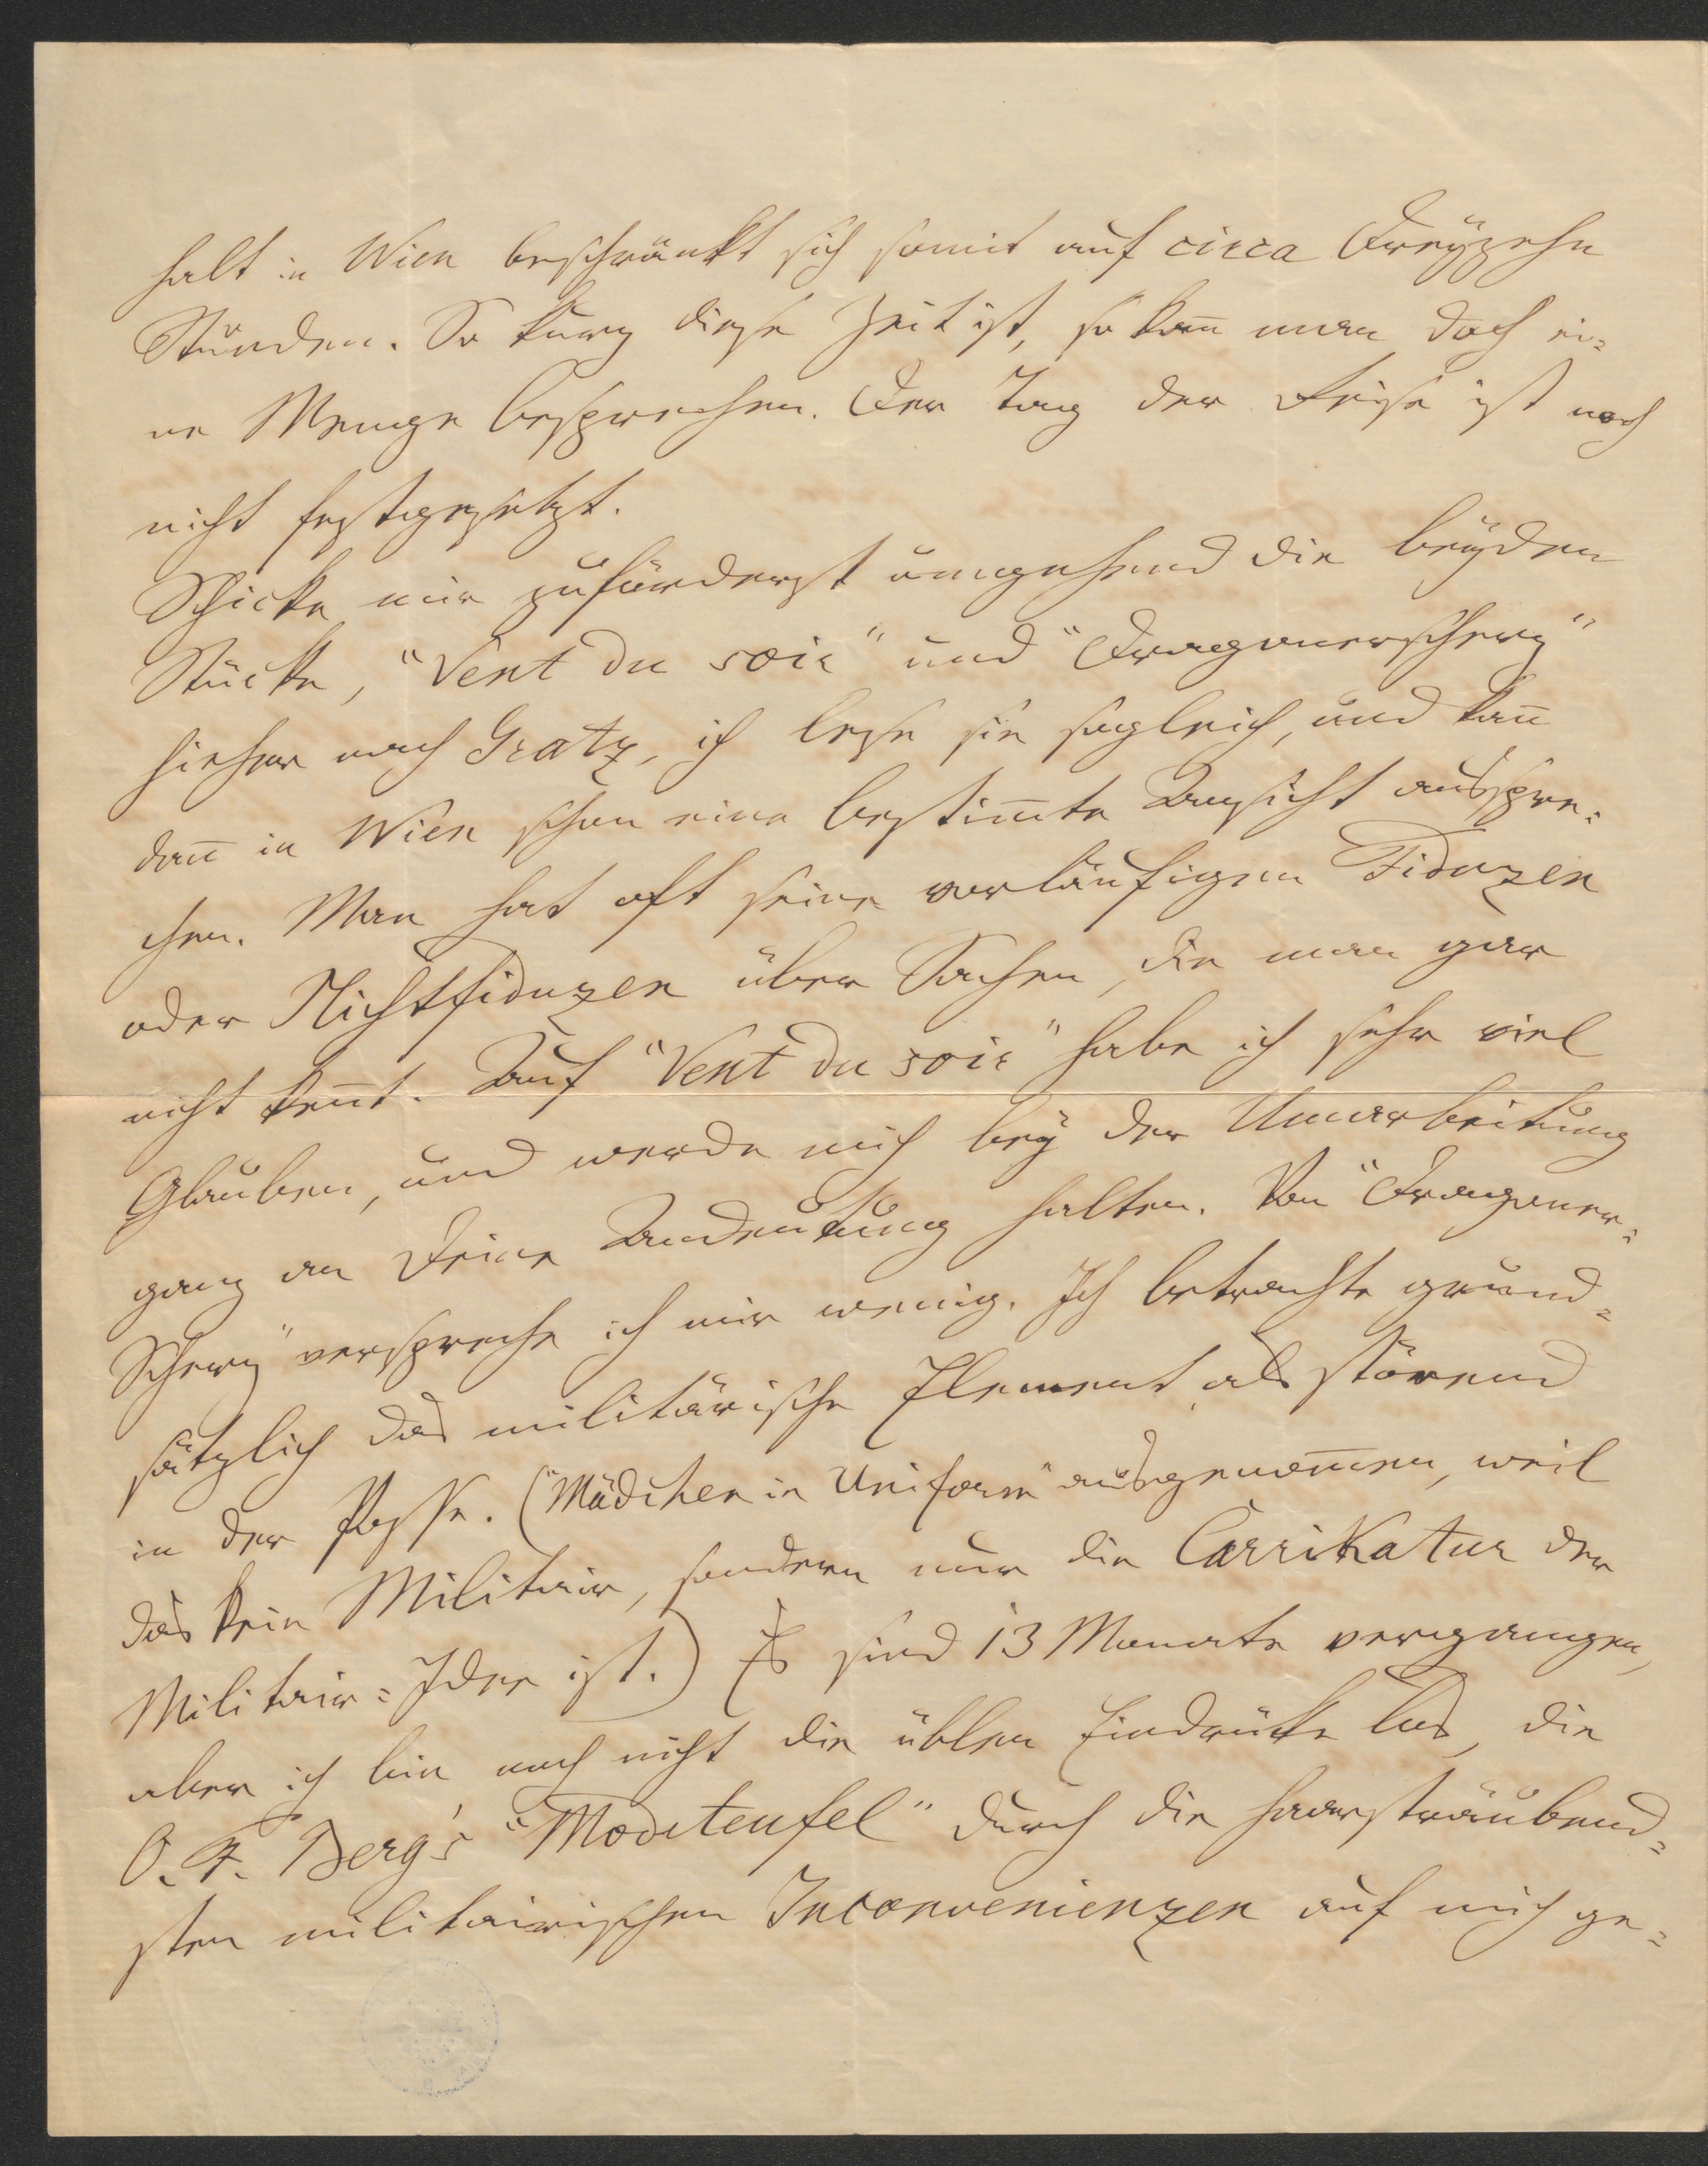 halt in Wien beschränkt sich somit auf circa Dreyzehn
Stunden. So kurz diese Zeit ist, so kan̅ man doch ei=
ne Menge besprechen. Der Tag der Reise ist noch
nicht festgesetzt.
Schicke mir zuförderst umgehend die beyden
Stücke, "Vent du soir" und "Dragonerscherz"
hieher nach Gratz, ich lese sie sogleich, und kan̅
dan̅ in Wien schon eine bestim̅te Ansicht ausspre=
chen. Man hat oft seine vorläufigen Fiduzen
oder Nichtfiduzen über Sachen, die man gar
nicht ken̅t. Auf "Vent du soir" habe ich sehr viel
Glauben, und werde mich bey der Umarbeitung
ganz an Deine Andeutung halten. Von "Dragoner=
Scherz" verspreche ich mir wenig. Ich betrachte grund=
sätzlich das militärische Element als störend
in der Posse. ("Mädchen in Uniform" ausgenom̅en, weil
das kein Militair, sondern nur die Carrikatur der
Militair=Idee ist.) Es sind 13 Monate vergangen,
aber ich bin noch nicht die üblen Eindrücke los, die
O. F. Berg's "Modeteufel" durch die haarsträubend=
sten militairischen Inconvenienzen auf mich ge=